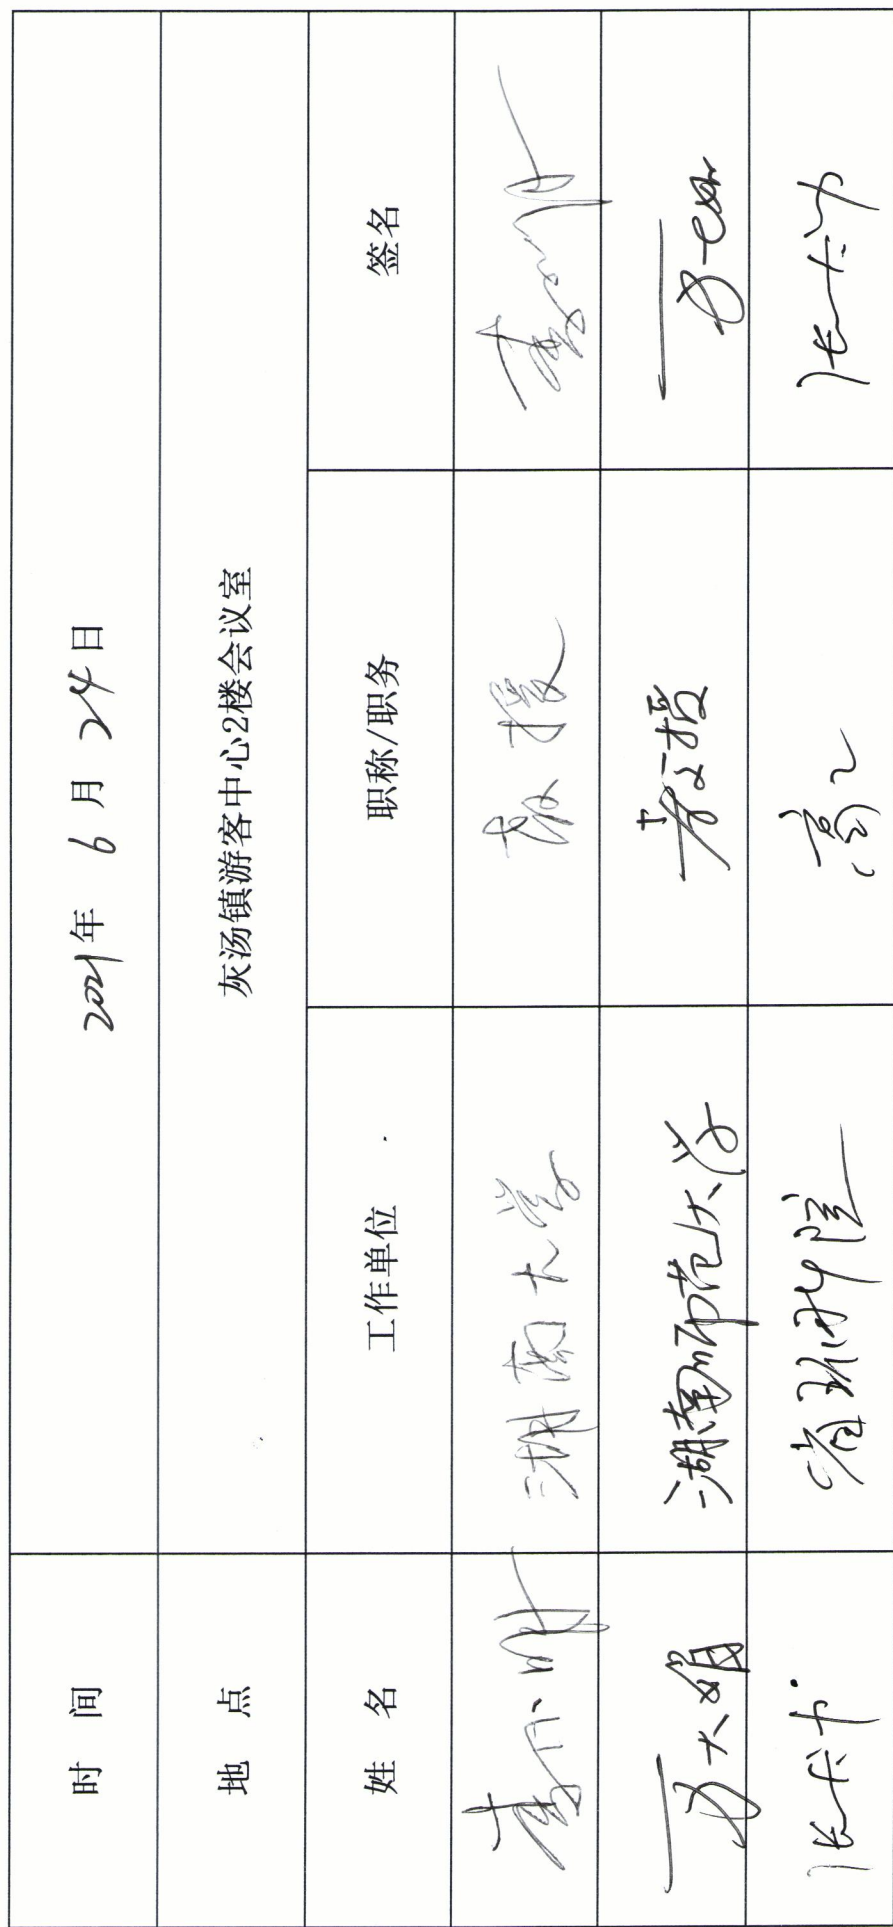 时 间 2021年 6 月 24日
地 点 灰汤镇游客中心2楼会议室
姓 名 工作单位 职称/职务 签名
湖南大学 教授
万大娟 湖南师范大学 教授 万大娟
省环科院 高工